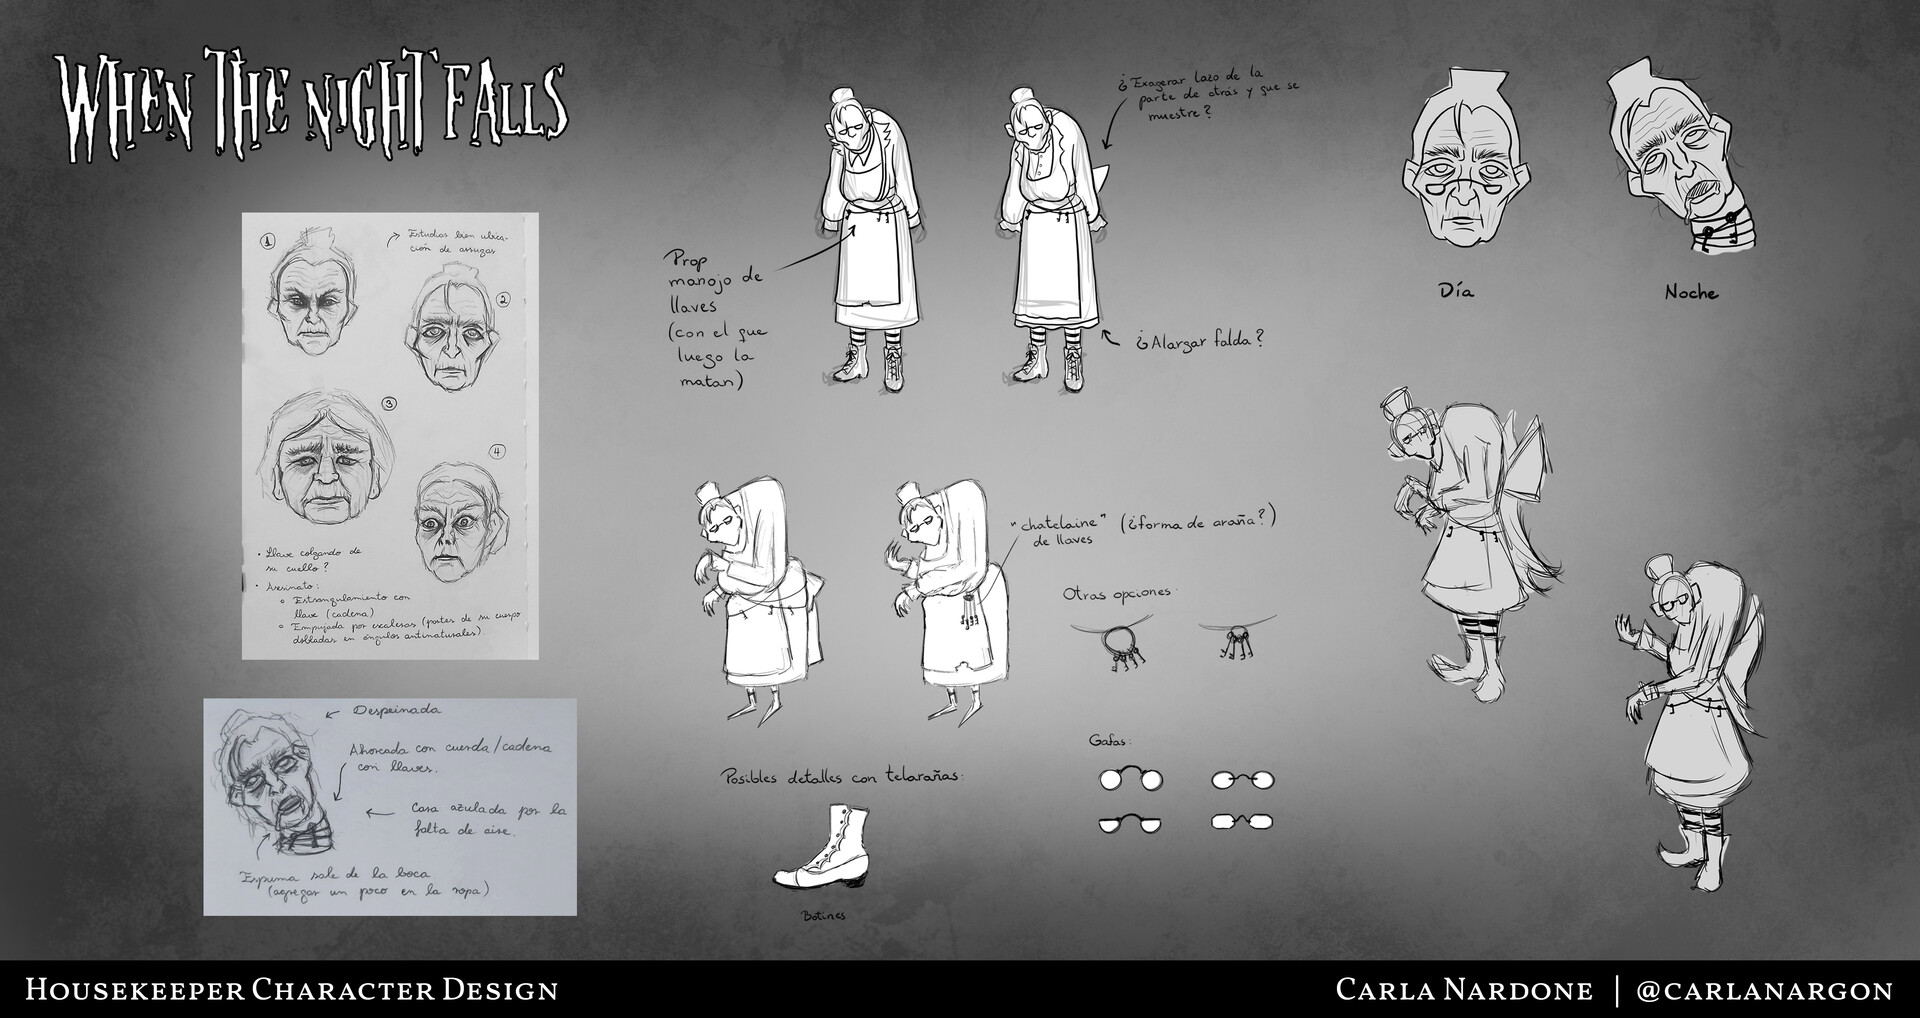 WHEN THE NIGHT FALLS
1
Estudiar bien ubica-
ción de arrugas
2
3
4
• Llave colgando de
su cuello?
• Asesinato:
o Estrangulamiento con
llave (cadena)
o Empujada por escaleras (partes de su cuerpo
dobladas en ángulos antinaturales)
Despeinada
Ahorcada con cuerda/cadena
con llaves.
Cara azulada por la
falta de aire.
Espuma sale de la boca
(agregar un poco en la ropa)
Prop
manojo de
llaves
(con el que
luego la
matan)
¿Exagerar lazo de la
parte de atrás y que se
muestre?
¿Alargar falda?
"chatelaine" (¿forma de araña?)
de llaves
Otras opciones:
Gafas:
Posibles detalles con telarañas:
Botines
Día
Noche
HOUSEKEEPER CHARACTER DESIGN
CARLA NARDONE | @CARLANARGON